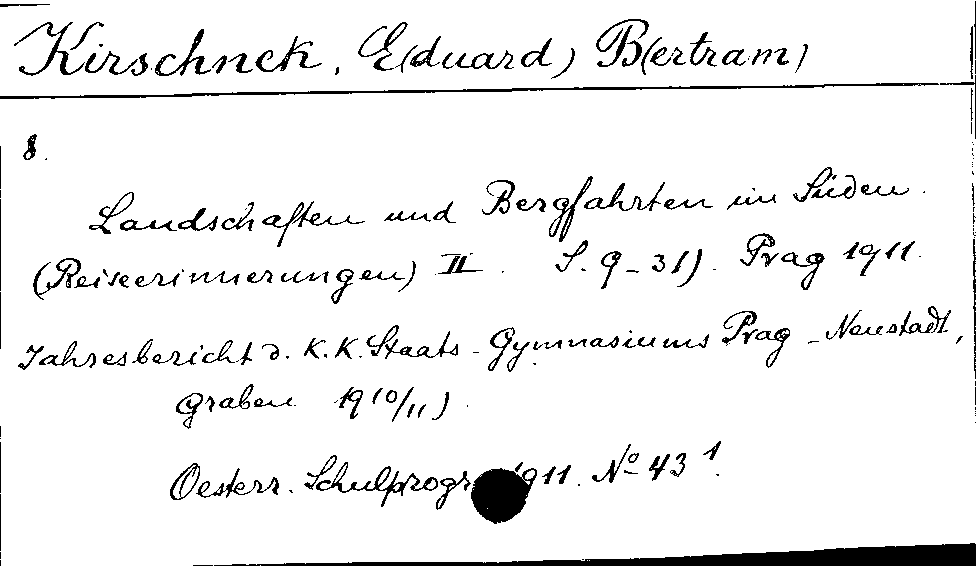 Kirschnek, E(duard) B(ertram)
8.
Landschaften und Bergfahrten im Süden.
(Reiseerinnerungen) II. S. 9-31). Prag 1911.
Jahresbericht d. K. K. Staats-Gymnasiums Prag-Neustadt,
Graben 1910/11)
Oesterr. Schulprogr. 1911. No 43 1.